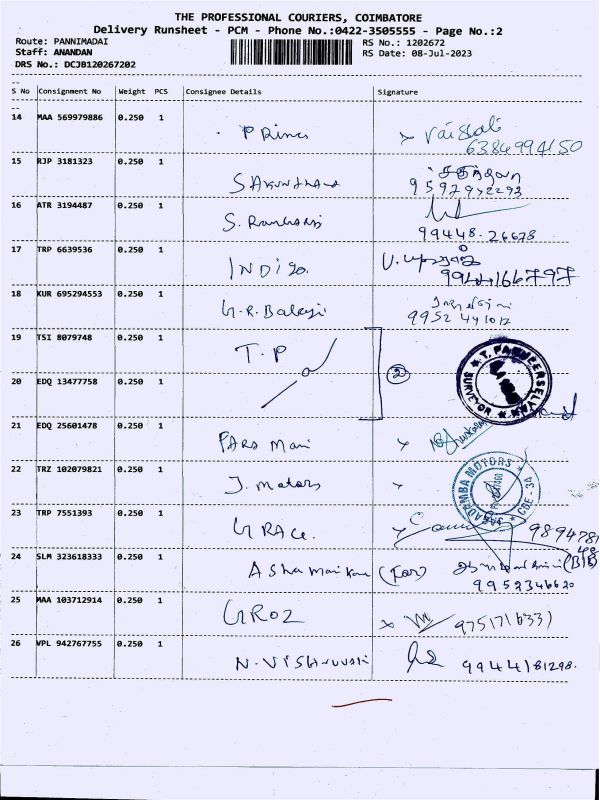 THE PROFESSIONAL COURIERS, COIMBATORE
Delivery Runsheet - PCM - Phone No.:0422-3505555 - Page No.:2
Route: PANNIMADAI RS No.: 1202672
Staff: ANANDAN RS Date: 08-Jul-2023
DRS No.: DCJB120267202
S No Consignment No Weight PCS Consignee Details Signature
14 MAA 569979886 0.250 1 Prince Vaisali
6384994150
15 RJP 3181323 0.250 1 SAKUNTHALA
9597972293
16 ATR 3194487 0.250 1 S.
99448-26678
17 TRP 6639536 0.250 1 INDIGO
9944166797
18 KUR 695294553 0.250 1 G.R. Balaji
9952441012
19 TSI 8079748 0.250 1 T.P
2
T. PANNEERSELVAM
SURVEYOR
20 EDQ 13477758 0.250 1
21 EDQ 25601478 0.250 1 PARS Mani
22 TRZ 102079821 0.250 1 J. Motors
JAGADAMBA MOTORS
CBE - 34
23 TRP 7551393 0.250 1 GRACE
24 SLM 323618333 0.250 1 (For)
9952346620
25 MAA 103712914 0.250 1 GROZ
9751716331
26 VPL 942767755 0.250 1
9944181298.